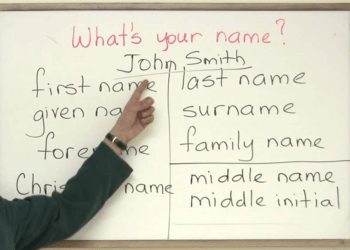 What's your name?
John Smith
first name last name
given na surname
fore me family name
Chris name middle name
middle initial